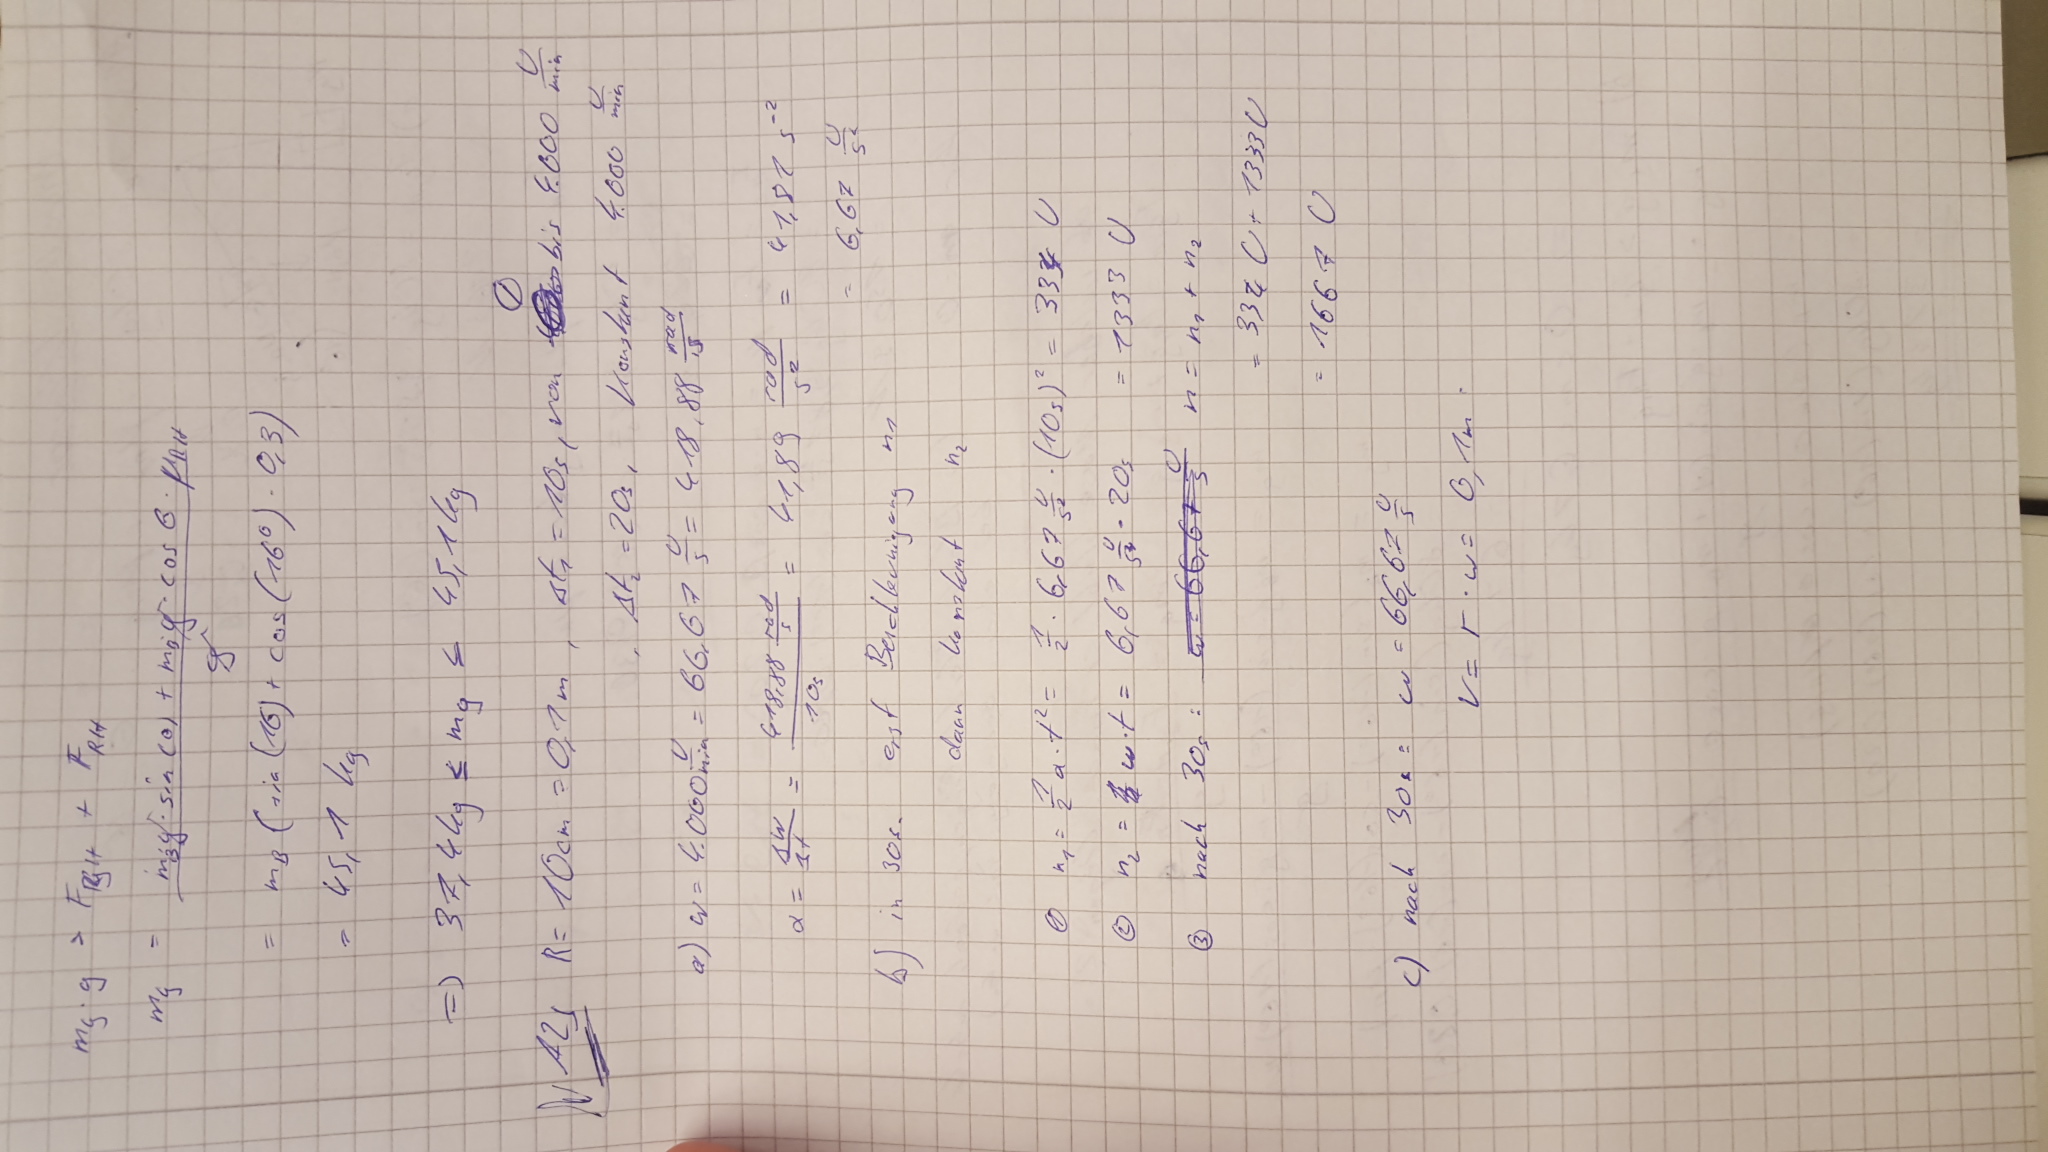 m_g · g > F_RgH + F_RH
m_g = (m_B g · sin(θ) + m_B g · cos θ · μ_RH) / g
= m_B (sin(16) + cos(16°) · 0,3)
= 45,1 kg
=> 37,4 kg ≤ m_g ≤ 45,1 kg
①
A2s R = 10cm = 0,1m , Δt₁ = 10s, von bis 4.000 U/min
, Δt₂ = 20s, Konstant 4.000 U/min
a) ω = 4.000 U/min = 66,67 U/s = 418,88 rad/s
α = Δω/Δt = (418,88 rad/s)/(10s) = 41,89 rad/s² = 41,81 s⁻²
= 6,67 U/s²
b) in 30s. erst Beschleunigung n₁
dann Konstant n₂
① n₁ = 1/2 α · t² = 1/2 · 6,67 U/s² · (10s)² = 334 U
② n₂ = ω · t = 6,67 U/s² · 20s = 1333 U
③ nach 30s: ω = 66,67 U/s n = n₁ + n₂
= 334 U + 1333 U
= 1667 U
c) nach 30s: ω = 66,67 U/s
V = r · ω = 0,1m ·